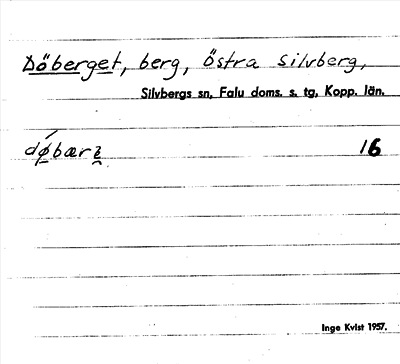 Döberget, berg, Östra Silvberg,
Silvbergs sn, Falu doms. s. tg, Kopp. län.
dǿ̠bærɜ̯ 16
Inge Kvist 1957.